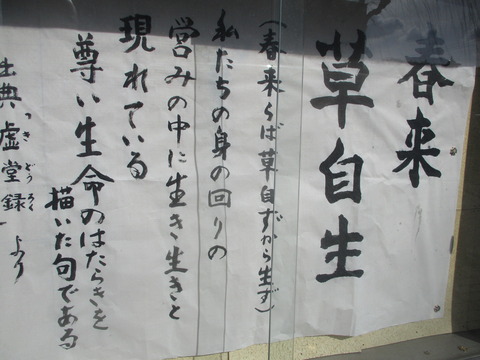 春来
草自生
(春来らば草自ずから生ず)
私たちの身の回りの
営みの中に生き生きと
現れている
尊い生命のはたらきを
描いた句である
出典 虚堂録 より
きどうろく